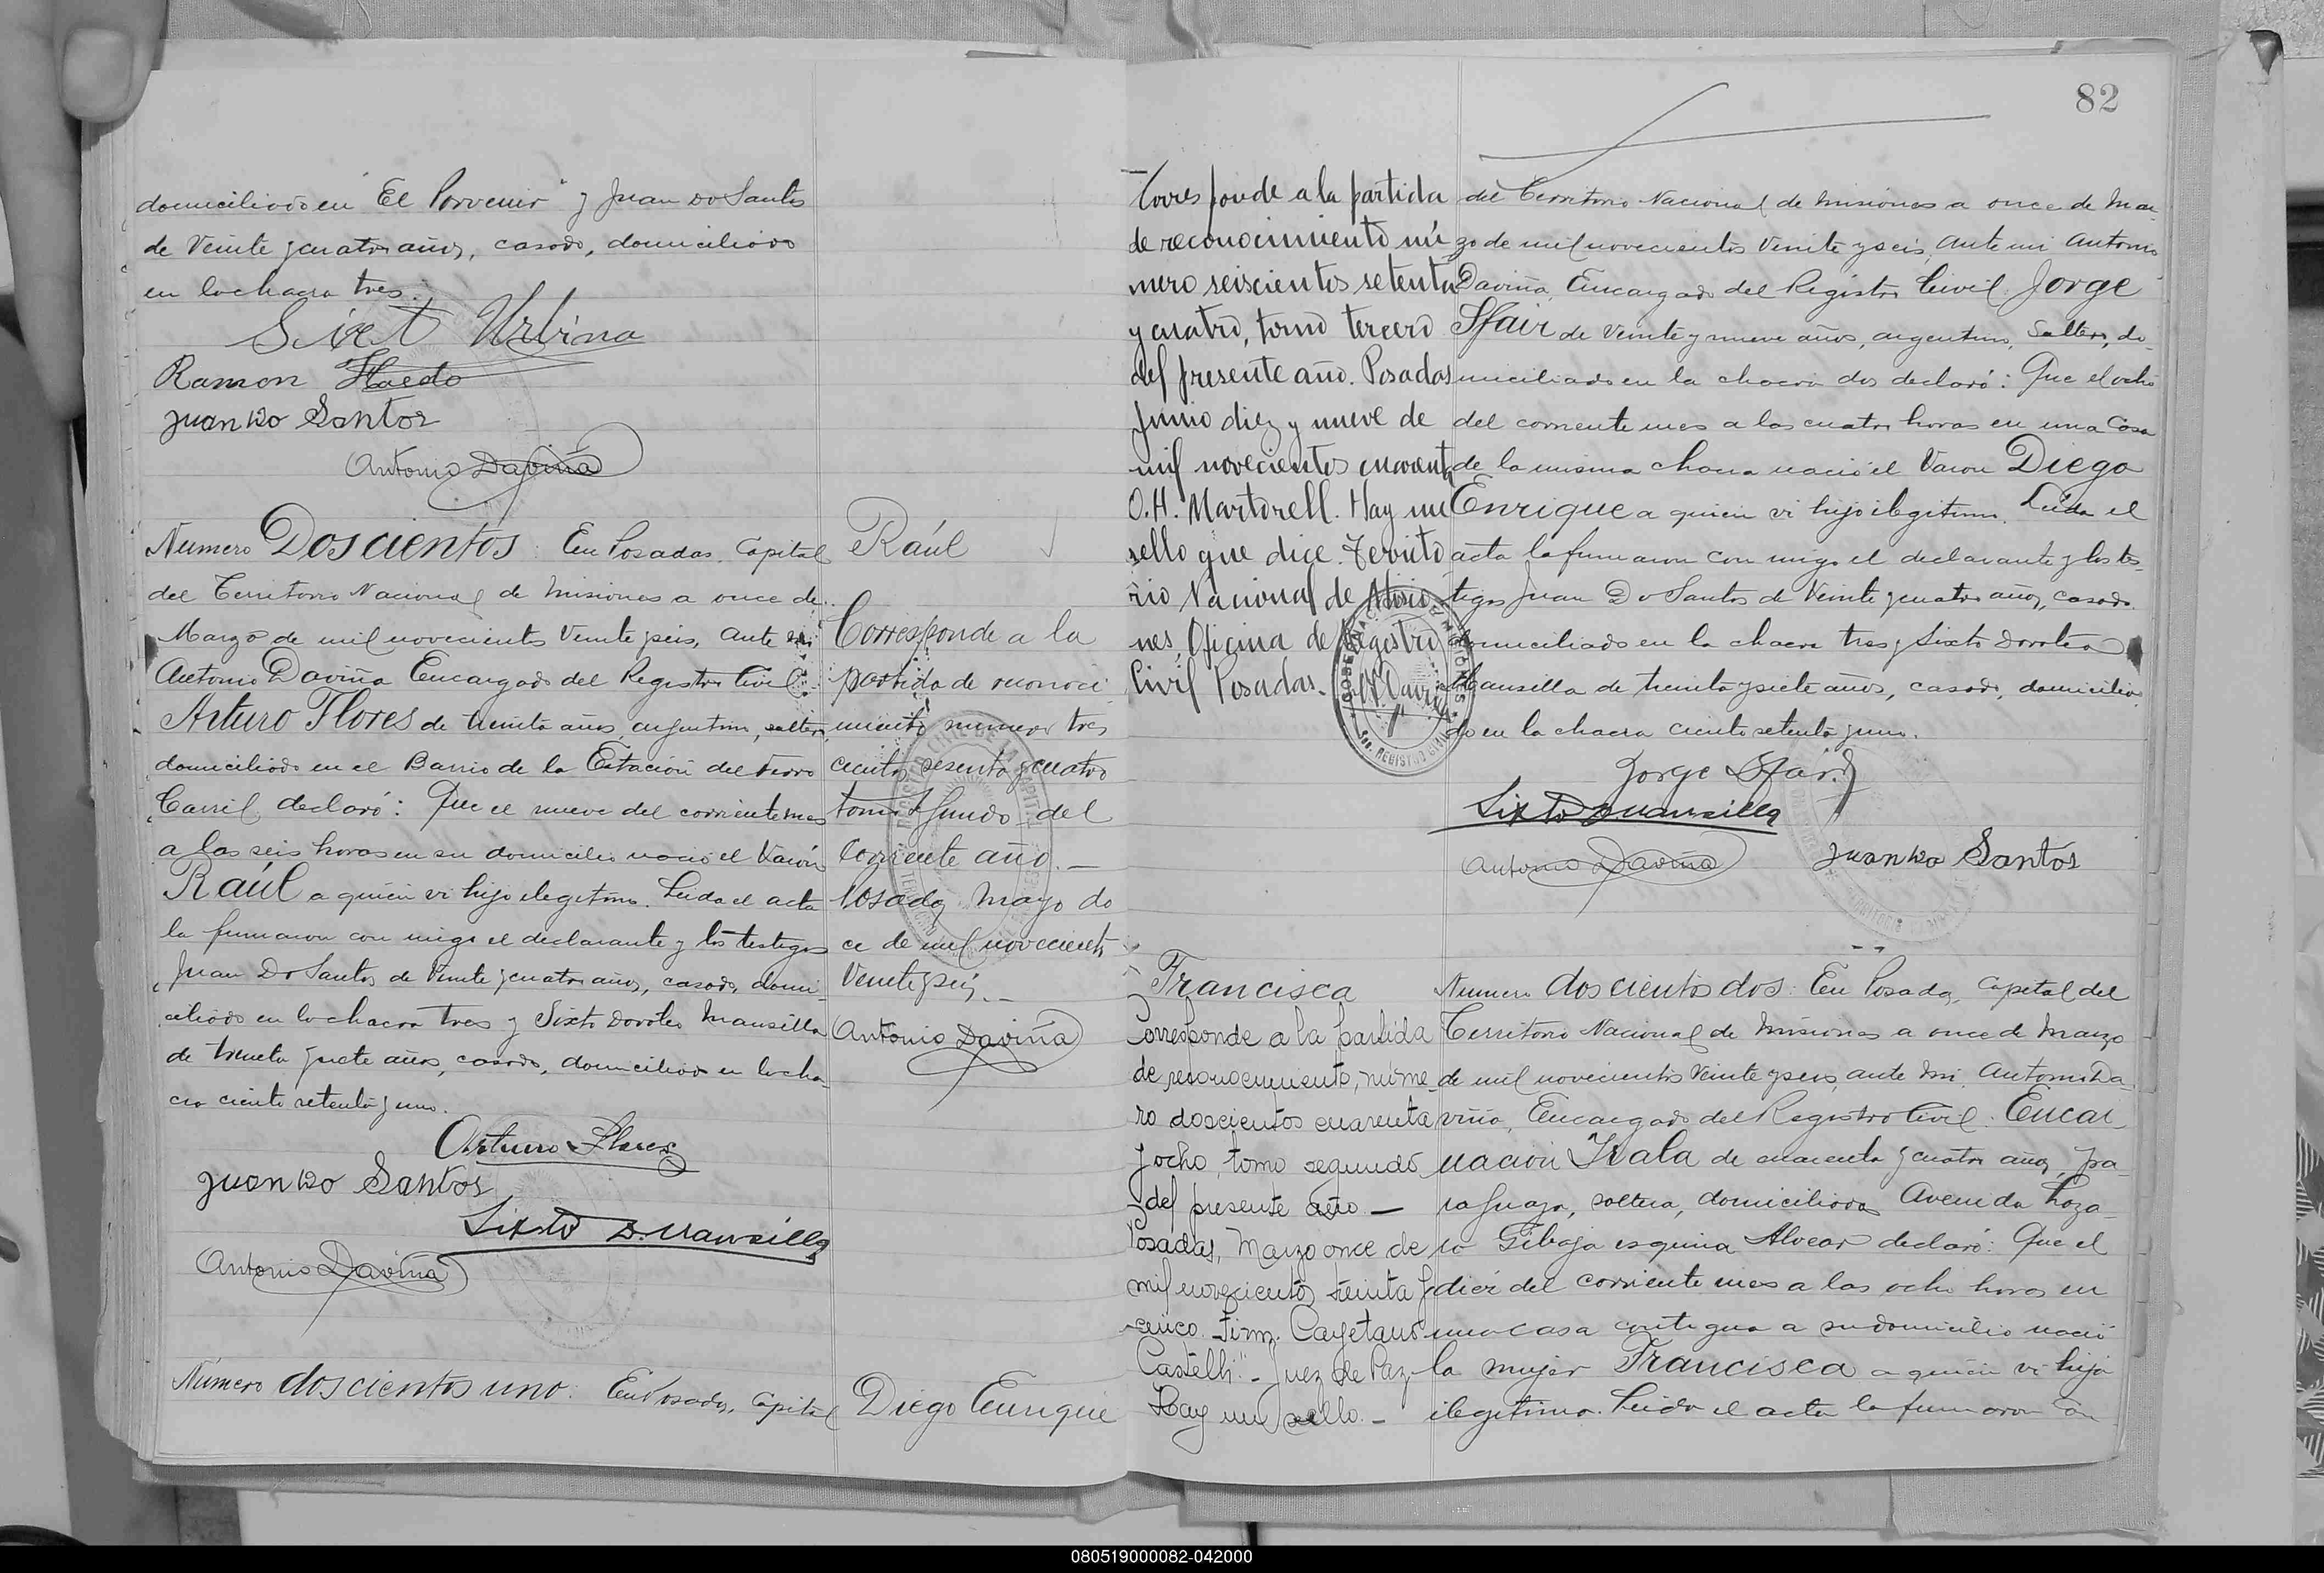 domiciliado en "El Porvenir" y Juan Do Santos
de Veinte y cuatro años, casado, domiciliado
en la chacra tres.
Sixt Urbina
Ramon Haedo
Juan Do Santos
Antonio Daviña
Numero Doscientos: En Posadas, Capital
del Territorio Nacional de Misiones a once de
Marzo de mil novecientos Veinte y seis, Ante mi
Antonio Daviña Encargado del Registro Civil
Arturo Flores de treinta años, argentino, soltero,
domiciliado en el Barrio de la Estación del Ferro
Carril, declaró: Que el nueve del corriente mes
a las seis horas en su domicilio nació el Varón
Raúl a quien vi hijo ilegitimo. Leida el acta
la firmaron con migo el declarante y los testigos
Juan Do Santos de Veinte y cuatro años, casado, domi-
ciliado en la chacra tres y Sixto Doroteo Mansilla
de treinta y siete años, casado, domiciliado en la cha-
cra ciento setenta y uno.
Arturo Flores
Juan Do Santos
Sixto D. Mansilla
Antonio Daviña
Número doscientos uno: En Posadas, Capital
Raúl
Corresponde a la
partida de reconoci
miento numero tres
cientos sesenta y cuatro
tomo segundo del
corriente año.—
Posadas, Mayo do
ce de mil novecientos
Veinte y seis.—
Antonio Daviña
Diego Enrique
82
Corresponde a la partida
de reconocimiento nú
mero seiscientos setenta
y cuatro, tomo tercero
del presente año. Posadas
Junio diez y nueve de
mil novecientos cuarenta
O.H. Martorell. Hay un
sello que dice. Territo
rio Nacional de Misio
nes, Oficina de Registro
Civil Posadas.
del Territorio Nacional de Misiones a once de Mar
zo de mil novecientos Veinte y seis, Ante mi Antonio
Daviña, Encargado del Registro Civil. Jorge
Sfair de Veinte y nueve años, argentino, Soltero, do-
miciliado en la chacra dos declaró: Que el ocho
del corriente mes a las cuatro horas en una Casa
de la misma chacra nació el Varon Diego
Enrique a quien vi hijo ilegitimo. Leida el
acta la firmaron con migo el declarante y los tes-
tigos Juan Do Santos de Veinte y cuatro años, casado
domiciliado en la chacra tres y Sixto Doroteo
Mansilla de treinta y siete años, casado, domicilia
do en la chacra ciento setenta y uno.
Jorge Sfair
Sixto D Mansilla
Antonio Daviña
Juan Do Santos
Francisca
Corresponde a la partida
de reconocimiento, núme-
ro doscientos cuarenta
y ocho, tomo segundo
del presente año.—
Posadas, Marzo once de
mil novecientos treinta y
cinco. Firm. Cayetano
Castelli.- Juez de Paz
Hay un sello.-
Numero doscientos dos: En Posadas, Capital del
Territorio Nacional de Misiones a once de Marzo
de mil novecientos Veinte y seis, ante mi, Antonio Da
viña, Encargado del Registro Civil. Encar_
nacion Irala de cuarenta y cuatro años, pa-
raguaya, soltera, domiciliada Avenida Roza-
co Gibaja esquina Alvear declaró: Que el
diez del corriente mes a las ocho horas en
una casa contigua a su domicilio nació
la mujer Francisca a quien vi hija
ilegitima. Leida el acta la firmaron con
080519000082-042000